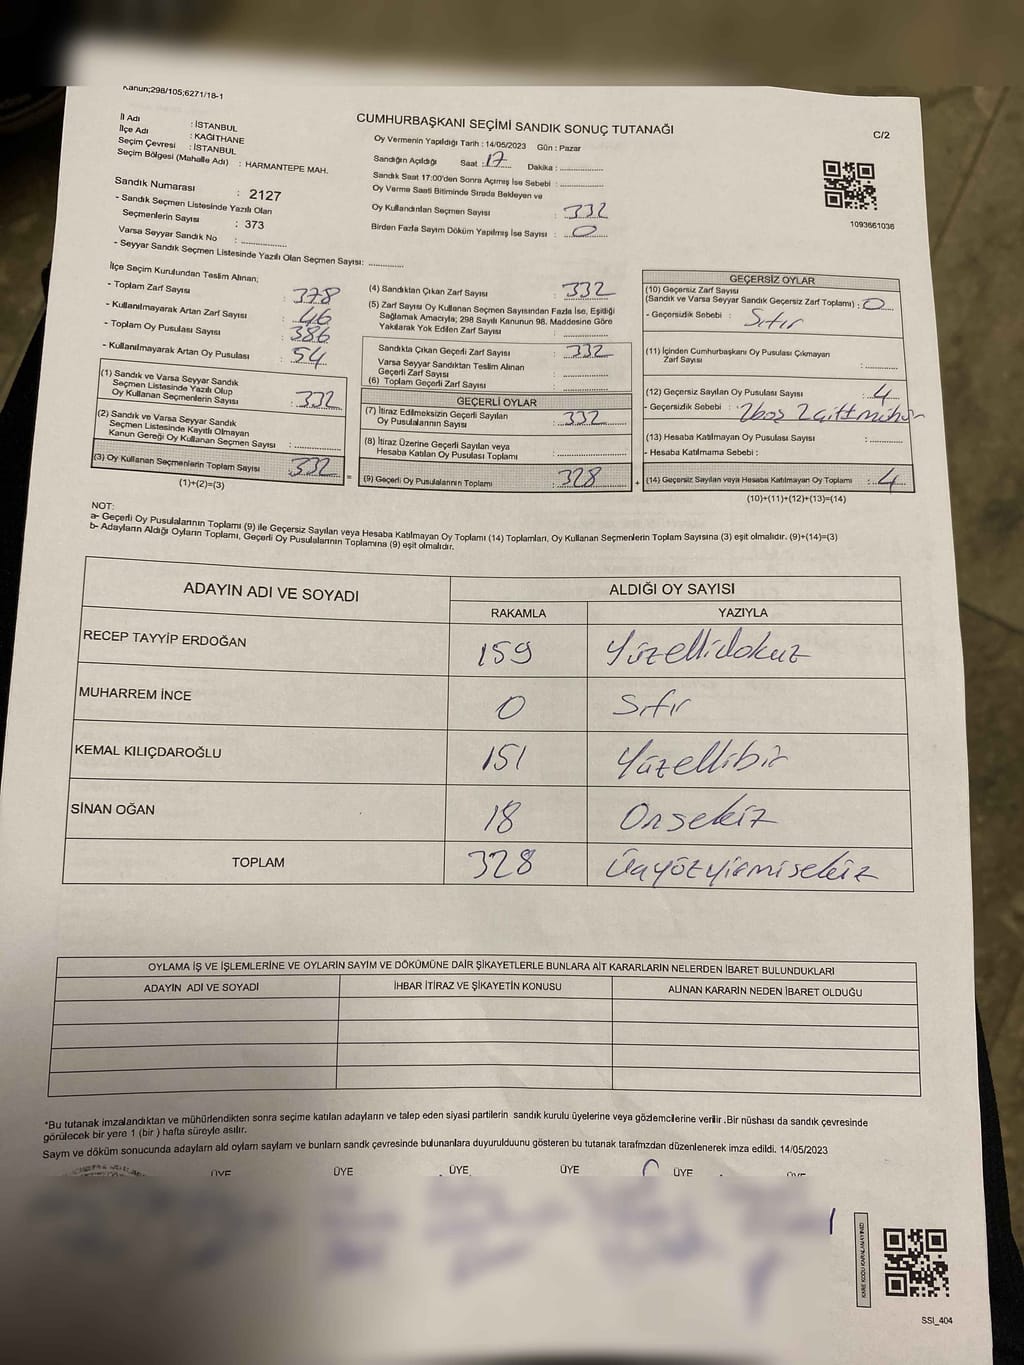 Kanun;298/105;6271/18-1
CUMHURBAŞKANI SEÇİMİ SANDIK SONUÇ TUTANAĞI
C/2
İl Adı : İSTANBUL
İlçe Adı : KAĞITHANE
Seçim Çevresi : İSTANBUL
Seçim Bölgesi (Mahalle Adı) : HARMANTEPE MAH.
Sandık Numarası : 2127
- Sandık Seçmen Listesinde Yazılı Olan
Seçmenlerin Sayısı : 373
Varsa Seyyar Sandık No : ..............
- Seyyar Sandık Seçmen Listesinde Yazılı Olan Seçmen Sayısı: ............
Oy Vermenin Yapıldığı Tarih : 14/05/2023 Gün : Pazar
Sandığın Açıldığı Saat : 17 Dakika : ..............
Sandık Saat 17:00'den Sonra Açımış İse Sebebi : ..............
Oy Verme Saati Bitiminde Sırada Bekleyen ve
Oy Kullandırılan Seçmen Sayısı : 332
Birden Fazla Sayım Döküm Yapılmış İse Sayısı : 0
1093661036
İlçe Seçim Kurulundan Teslim Alınan;
- Toplam Zarf Sayısı : 378
- Kullanılmayarak Artan Zarf Sayısı : 46
- Toplam Oy Pusulası Sayısı : 386
- Kullanılmayarak Artan Oy Pusulası : 54
(1) Sandık ve Varsa Seyyar Sandık
Seçmen Listesinde Yazılı Olup
Oy Kullanan Seçmenlerin Sayısı : 332
(2) Sandık ve Varsa Seyyar Sandık
Seçmen Listesinde Kayıtlı Olmayan
Kanun Gereği Oy Kullanan Seçmen Sayısı : ..............
(3) Oy Kullanan Seçmenlerin Toplam Sayısı : 332
(1)+(2)=(3)
=
(4) Sandıktan Çıkan Zarf Sayısı : 332
(5) Zarf Sayısı Oy Kullanan Seçmen Sayısından Fazla İse, Eşitliği
Sağlamak Amacıyla; 298 Sayılı Kanunun 98. Maddesine Göre
Yakılarak Yok Edilen Zarf Sayısı : ..............
Sandıkta Çıkan Geçerli Zarf Sayısı : 332
Varsa Seyyar Sandıktan Teslim Alınan
Geçerli Zarf Sayısı : ..............
(6) Toplam Geçerli Zarf Sayısı : ..............
GEÇERLİ OYLAR
(7) İtiraz Edilmeksizin Geçerli Sayılan
Oy Pusulalarının Sayısı : 332
(8) İtiraz Üzerine Geçerli Sayılan veya
Hesaba Katılan Oy Pusulası Toplamı : ..............
(9) Geçerli Oy Pusulalarının Toplamı : 328
+
GEÇERSİZ OYLAR
(10) Geçersiz Zarf Sayısı
(Sandık ve Varsa Seyyar Sandık Geçersiz Zarf Toplamı) : 0
- Geçersizlik Sebebi : Sıfır
(11) İçinden Cumhurbaşkanı Oy Pusulası Çıkmayan
Zarf Sayısı : ..............
(12) Geçersiz Sayılan Oy Pusulası Sayısı : 4
- Geçersizlik Sebebi : 2boş 2çift mühür
(13) Hesaba Katılmayan Oy Pusulası Sayısı : ..............
- Hesaba Katılmama Sebebi :
(14) Geçersiz Sayılan veya Hesaba Katılmayan Oy Toplamı : 4
(10)+(11)+(12)+(13)=(14)
NOT:
a- Geçerli Oy Pusulalarının Toplamı (9) ile Geçersiz Sayılan veya Hesaba Katılmayan Oy Toplamı (14) Toplamları, Oy Kullanan Seçmenlerin Toplam Sayısına (3) eşit olmalıdır. (9)+(14)=(3)
b- Adayların Aldığı Oyların Toplamı, Geçerli Oy Pusulalarının Toplamına (9) eşit olmalıdır.
ADAYIN ADI VE SOYADI
ALDIĞI OY SAYISI
RAKAMLA YAZIYLA
RECEP TAYYİP ERDOĞAN 159 Yüzellidokuz
MUHARREM İNCE 0 Sıfır
KEMAL KILIÇDAROĞLU 151 Yüzellibir
SİNAN OĞAN 18 Onsekiz
TOPLAM 328 Üçyüzyirmisekiz
OYLAMA İŞ VE İŞLEMLERİNE VE OYLARIN SAYIM VE DÖKÜMÜNE DAİR ŞİKAYETLERLE BUNLARA AİT KARARLARIN NELERDEN İBARET BULUNDUKLARI
ADAYIN ADI VE SOYADI İHBAR İTİRAZ VE ŞİKAYETİN KONUSU ALINAN KARARIN NEDEN İBARET OLDUĞU
*Bu tutanak imzalandıktan ve mühürlendikten sonra seçime katılan adayların ve talep eden siyasi partilerin sandık kurulu üyelerine veya gözlemcilerine verilir .Bir nüshası da sandık çevresinde
görülecek bir yere 1 (bir ) hafta süreyle asılır.
Sayım ve döküm sonucunda adayların ald oylam saylam ve bunlarn sandk çevresinde bulunanlara duyurulduunu gösteren bu tutanak tarafmzdan düzenlenerek imza edildi. 14/05/2023
ÜYE ÜYE ÜYE ÜYE ÜYE ÜYE
KARE KODU KARALAMAYINIZ!
SSI_404